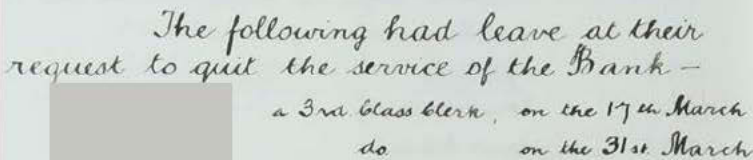 The following had leave at their
request to quit the service of the Bank —
a 3rd Class Clerk, on the 17th March
do on the 31st March